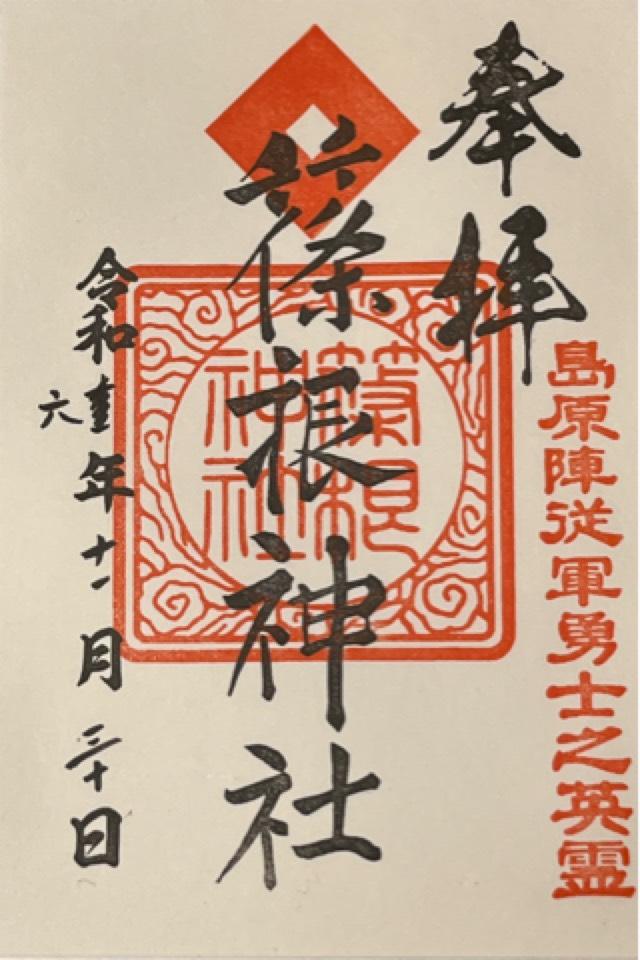 奉拝
島原陣従軍勇士之英霊
篠根神社
篠根
神社
令和六年十一月三十日